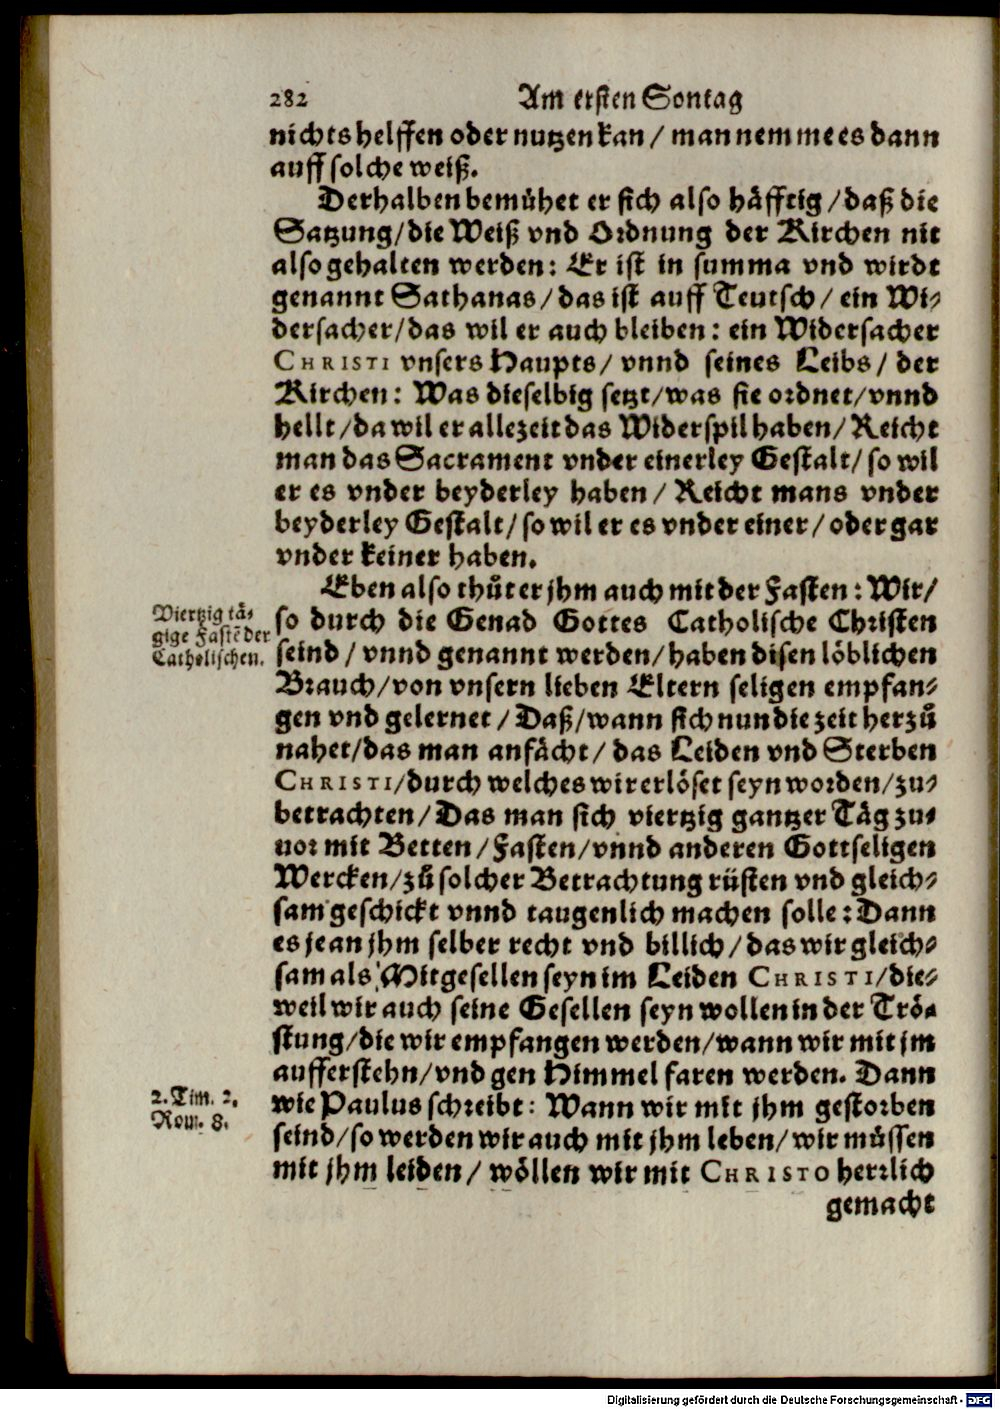 282 Am ersten Sontag
nichts helffen oder nutzen kan / man nemme es dann
auff solche weiß.
Derhalben bemühet er sich also häfftig / daß die
Satzung / die Weiß vnd Ordnung der Kirchen nit
also gehalten werden: Er ist in summa vnd wirdt
genannt Sathanas / das ist auff Teutsch / ein Wi-
dersacher / das wil er auch bleiben: ein Widersacher
CHRISTI vnsers Haupts / vnnd seines Leibs / der
Kirchen: Was dieselbig setzt / was sie ordnet / vnnd
hellt / da wil er allezeit das Widerspil haben / Reicht
man das Sacrament vnder einerley Gestalt / so wil
er es vnder beyderley haben / Reicht mans vnder
beyderley Gestalt / so wil er es vnder einer / oder gar
vnder keiner haben.
Eben also thůt er jhm auch mit der Fasten: Wir /
Viertzig tä-
gige Fastẽ der
Catholischen.
so durch die Genad Gottes Catholische Christen
seind / vnnd genannt werden / haben disen löblichen
Brauch / von vnsern lieben Eltern seligen empfan-
gen vnd gelernet / Daß / wann sich nun die zeit herzů
nahet / das man anfächt / das Leiden vnd Sterben
CHRISTI / durch welches wir erlöset seyn worden / zu-
betrachten / Das man sich viertzig gantzer Täg zu-
uor mit Betten / Fasten / vnnd anderen Gottseligen
Wercken / zů solcher Betrachtung rüsten vnd gleich-
sam geschickt vnnd taugenlich machen solle: Dann
es je an jhm selber recht vnd billich / das wir gleich-
sam als Mitgesellen seyn im Leiden CHRISTI / die-
weil wir auch seine Gesellen seyn wollen in der Trö-
stung / die wir empfangen werden / wann wir mit jm
aufferstehn / vnd gen Himmel faren werden. Dann
2. Tim. 2.
Rom. 8.
wie Paulus schreibt: Wann wir mit jhm gestorben
seind / so werden wir auch mit jhm leben / wir müssen
mit jhm leiden / wöllen wir mit CHRISTO herrlich
gemacht
Digitalisierung gefördert durch die Deutsche Forschungsgemeinschaft - DFG